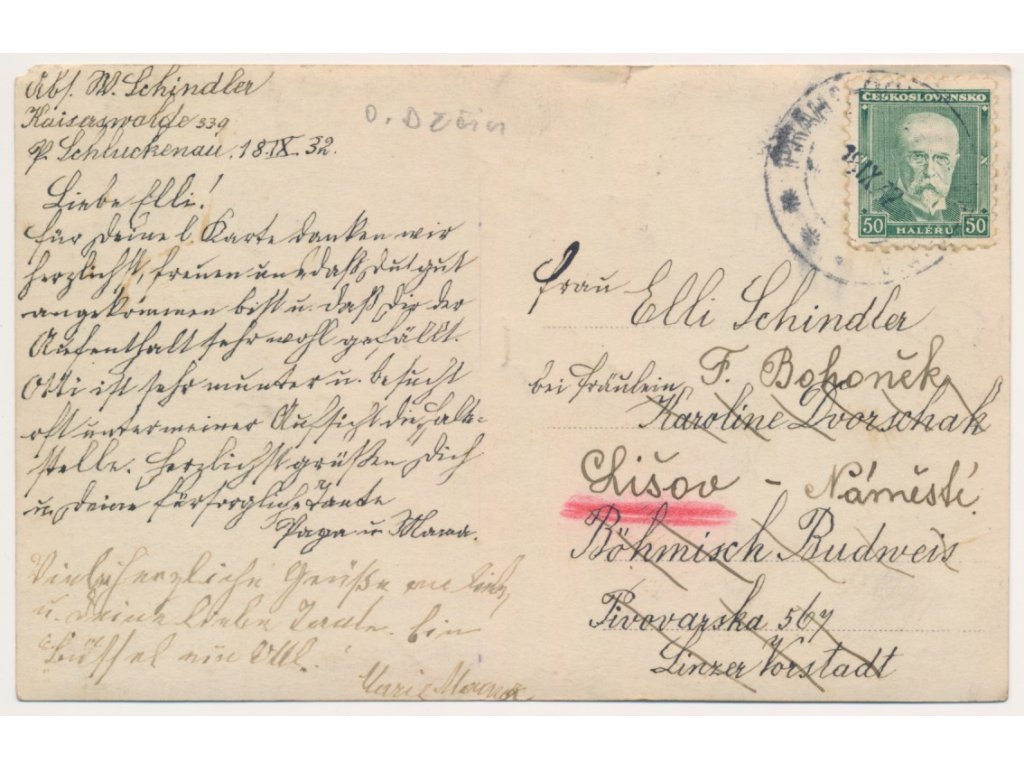 Abs. W. Schindler
Kaiserswalde 339
P. Schluckenau. 18.IX.32.
Liebe Elli!
Für Deine l. Karte danken wir
herzlichst, freuen uns daß Du gut
angekommen bist u. daß Dir der
Aufenthalt sehr wohl gefällt.
Otti ist sehr munter u. besucht
oft unter meiner Aufsicht die
stelle. Herzlichst grüßen Dich
u. Deine fürsorgliche Tante
Papa u Mama.
Viele herzliche Grüße an
u. Deine liebe Tante. Ein
Marie
O. Děčín
PRAHA
ČESKOSLOVENSKO
50 HALÉŘŮ 50
Frau Elli Schindler
bei Fräulein F. Bohoněk
Karoline Dvorschak
Lišov - Náměstí.
Böhmisch Budweis
Pivovarska 567
Linzer Vorstadt